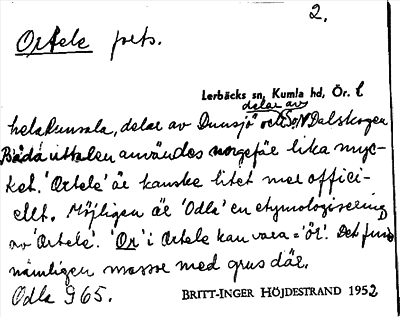 2.
Ortele forts.
Lerbäcks sn, Kumla hd, Ör. l
delar av
hela Runsala, delar av Dunsjö och S. Dalskogen
Båda uttalen användes ungefär lika myc-
ket. 'Ortele' är kanske litet mer offici-
ellt. Möjligen är 'Odla' en etymologisering
av 'Ortele'. 'Or' i Ortele kan vara = 'ör'. Det finns
nämligen massor med grus där.
Odla 965.
BRITT-INGER HÖJDESTRAND 1952